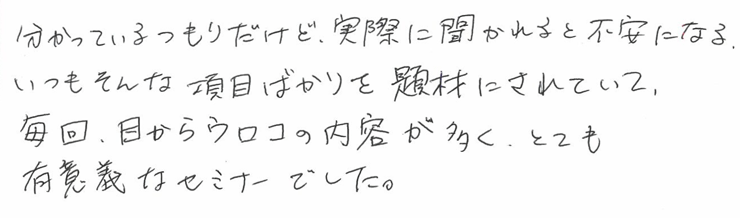 分かっているつもりだけど、実際に聞かれると不安になる、
いつもそんな項目ばかりを題材にされていて、
毎回、目からウロコの内容が多く、とても
有意義なセミナーでした。